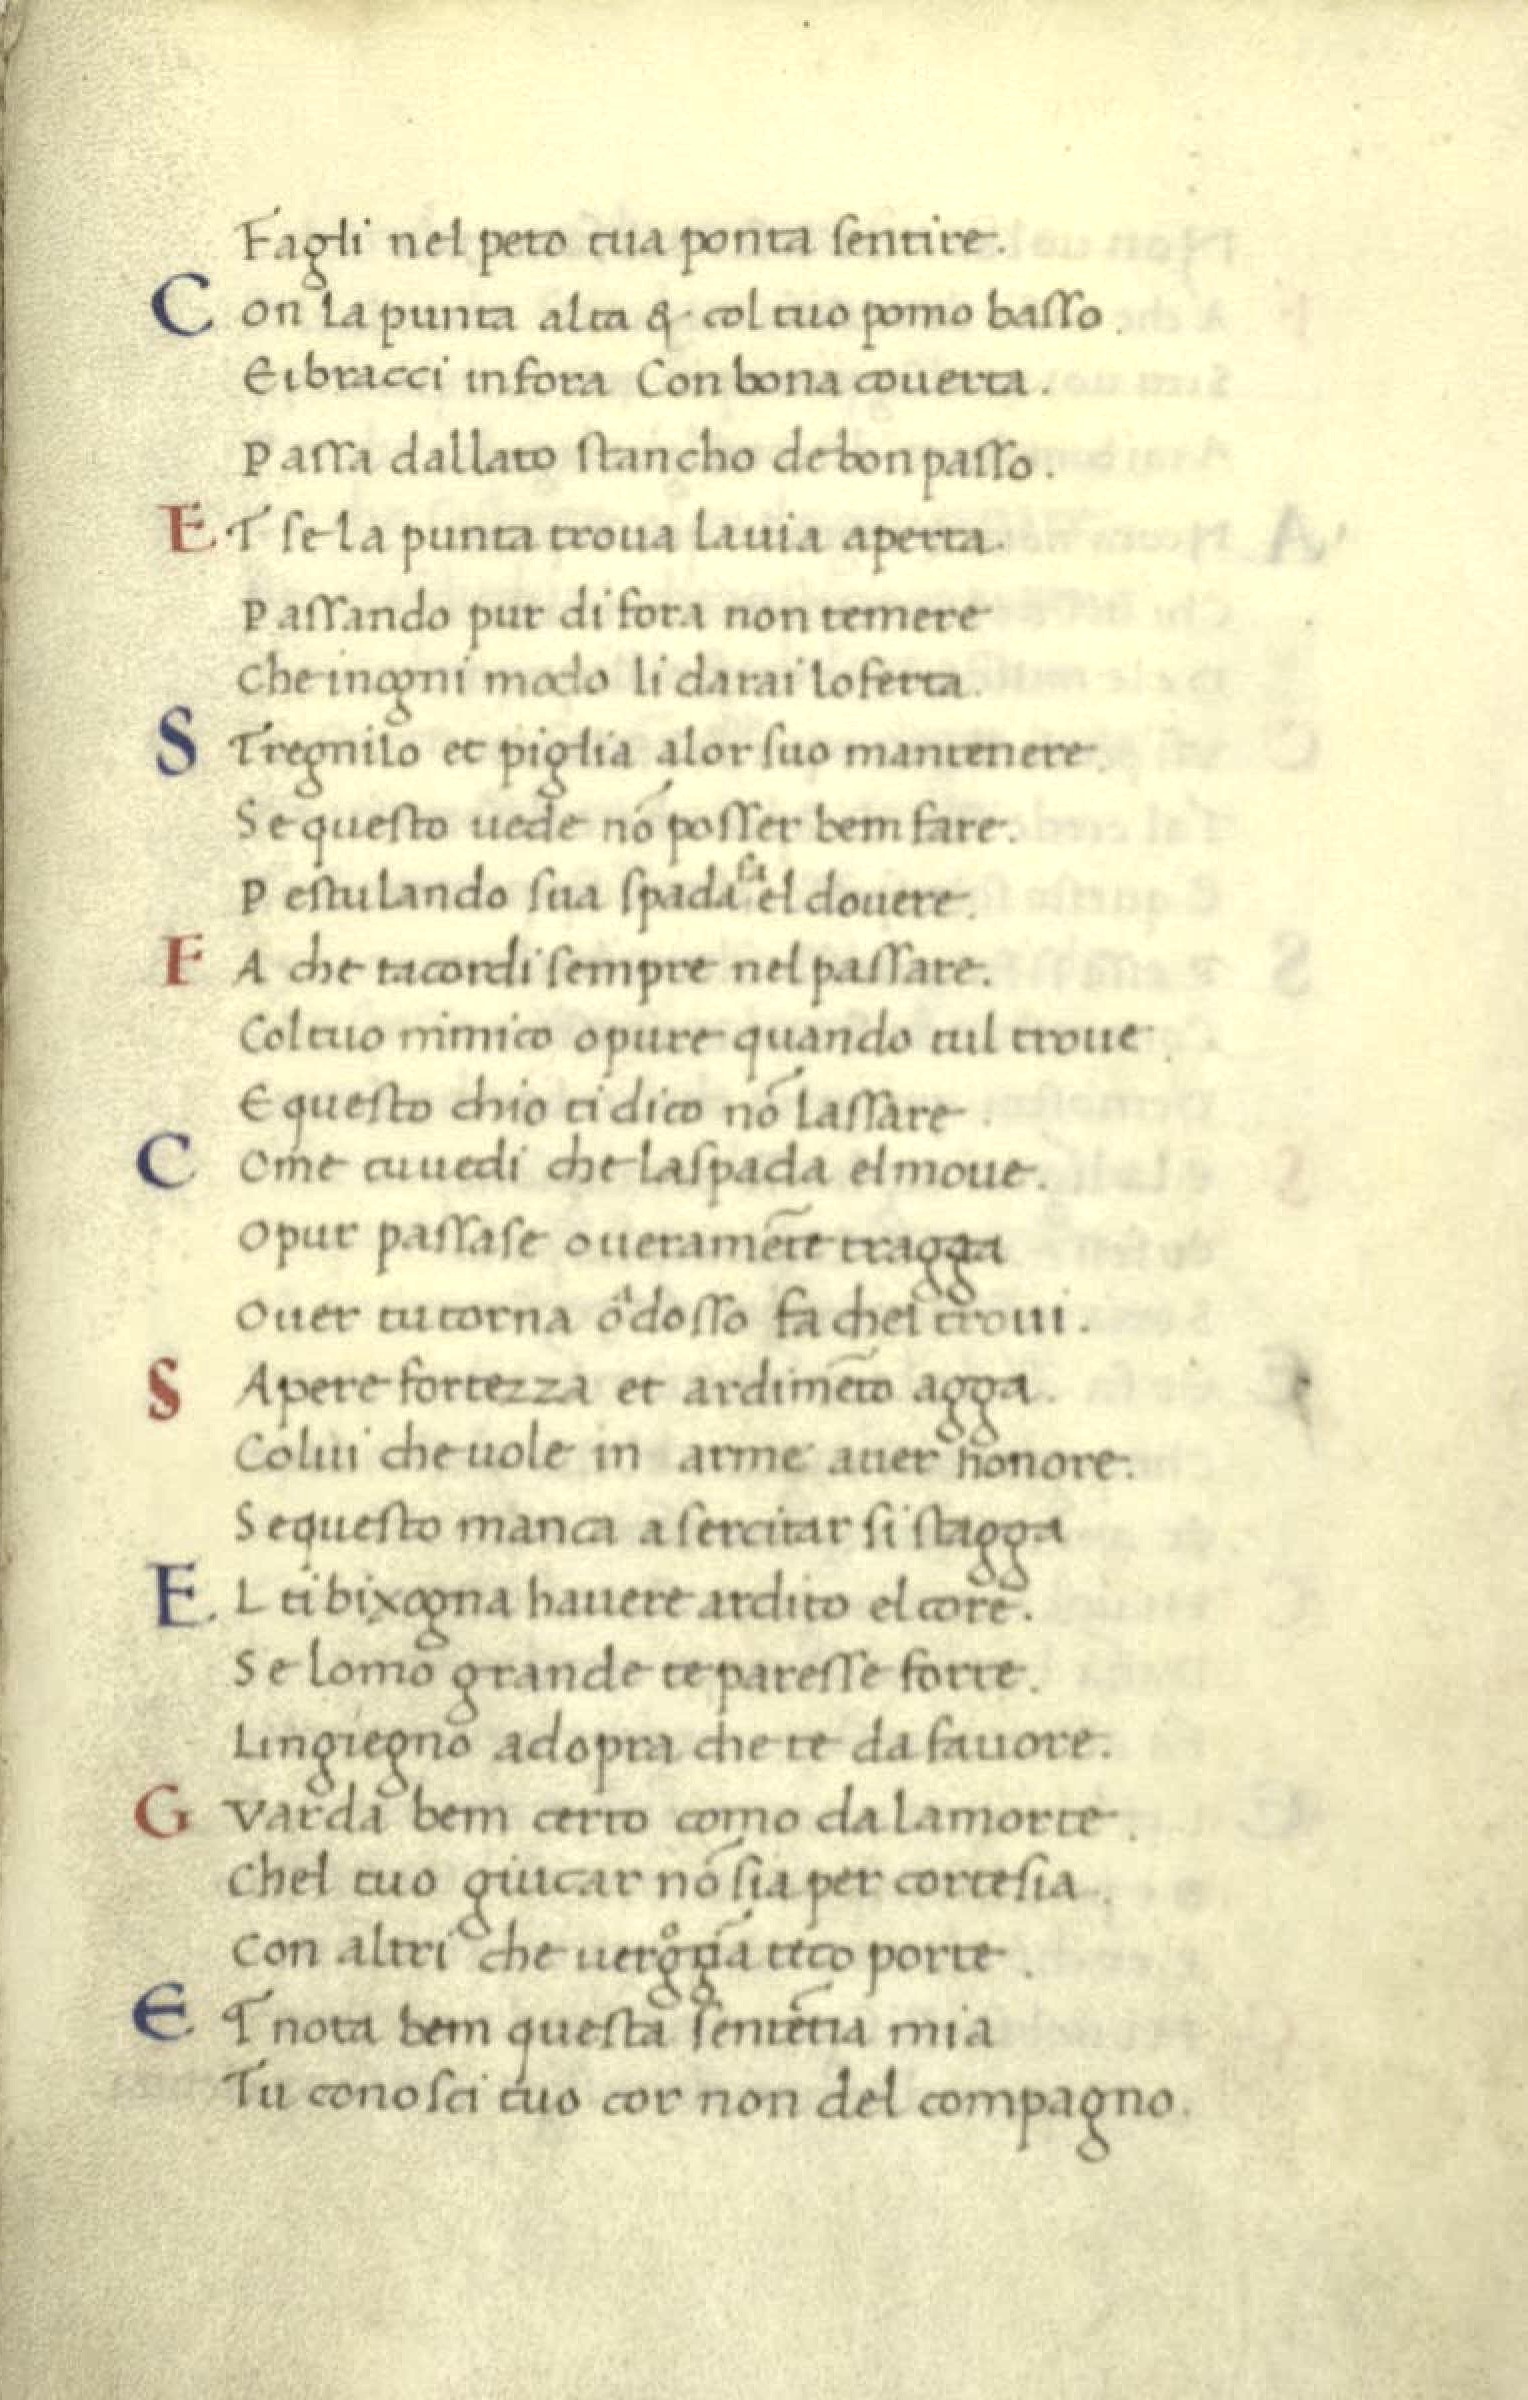 Fagli nel peto tua ponta sentire.
Con la punta alta & col tuo pomo basso.
Ei bracci in fora Con bona couerta.
Passa dallato stancho de bon passo.
ET se la punta troua la uia aperta.
Passando pur di fora non temere
Che in ogni modo li darai lo ferta.
STregnilo et piglia alor suo mantenere.
Se questo uede nõ posser bem fare.
Pestulando sua spada fa el douere.
FA che tacordi sempre nel passare.
Col tuo nimico o pure quando tul troue.
E questo chio ti dico nõ lassare.
Come tu uedi che la spada el moue.
O pur passase o ueramẽte tragga
Ouer tu torna õ dosso fa chel troui.
SApere fortezza et ardimẽto agga.
Colui che uole in arme auer honore.
Se questo manca a sercitar si stagga
EL ti bixogna hauere ardito el core.
Se lomo grande te paresse forte.
Lingiegno adopra che te da fauore.
GVarda bem certo como da la morte.
Chel tuo giucar nõ sia per cortesia.
Con altri che uergogña teco porte.
ET nota bem questa sentẽtia mia
Tu conosci tuo cor non del compagno.